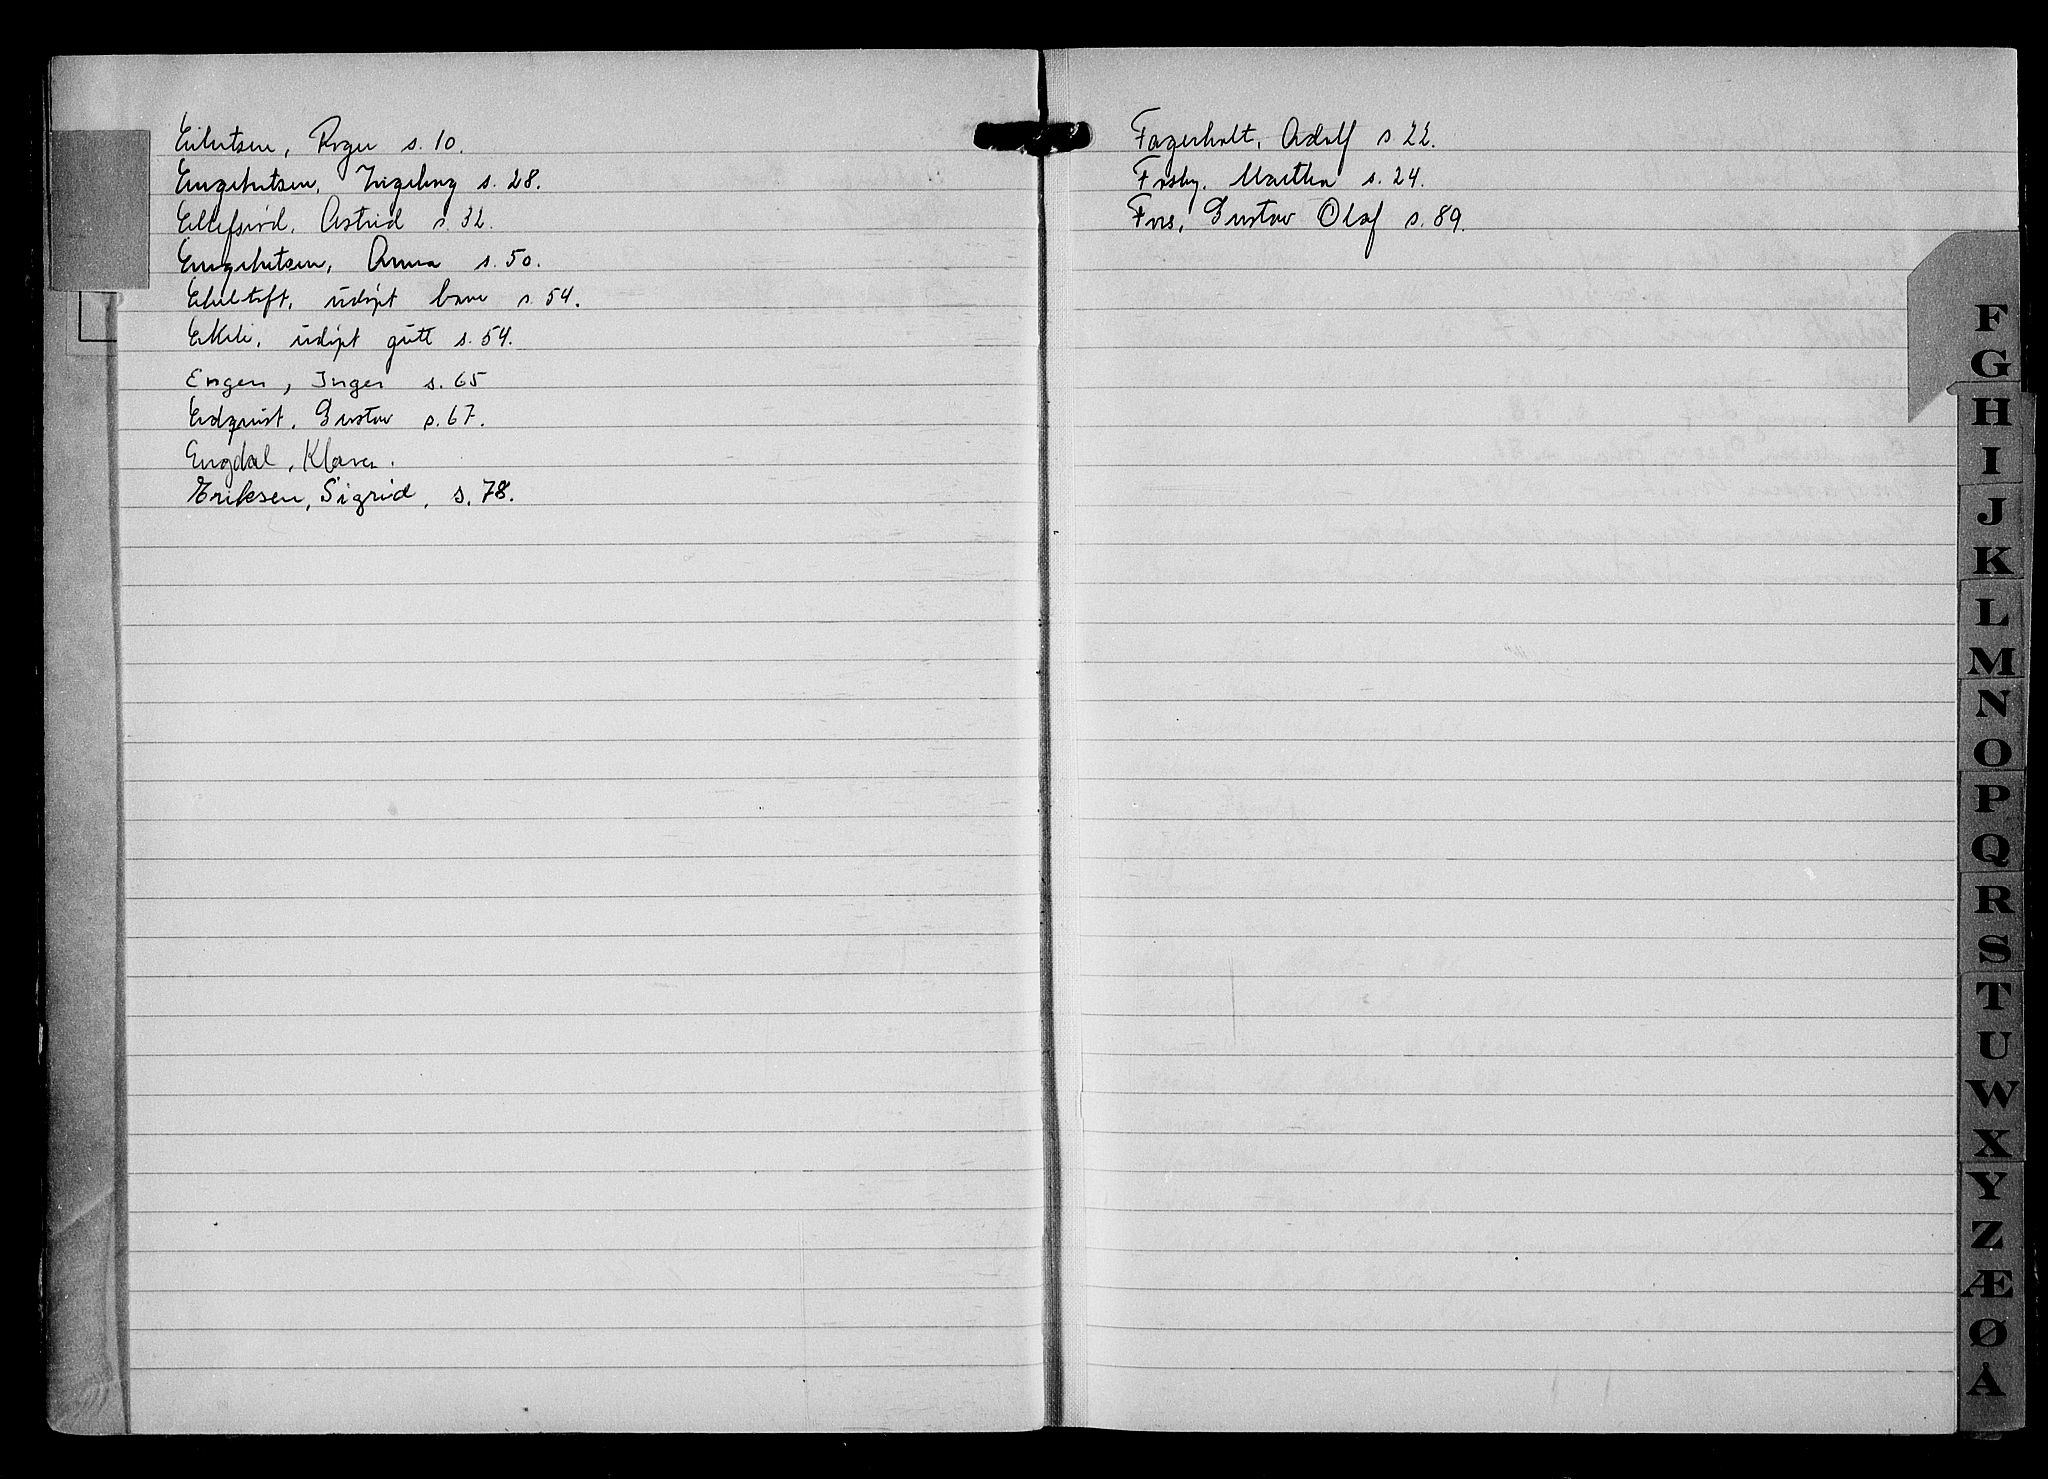 Eilertsen, Roger s. 10.
Engebretsen, Ingeborg s. 28.
Ellefsrød, Astrid s. 32.
Engebretsen, Anna s. 50.
udøpt barn s. 54.
Ekeli, udøpt gutt s. 54.
Engen, Inger s. 65
Edquist, Gustav s. 67.
Engdal, Klara.
Eriksen, Sigrid, s. 78.
Fagerholt, Adolf s 22.
Frosby. Martha s. 24.
Foss, Gustav Olaf s. 89.
F
G
H
I
J
K
L
M
N
O
P
Q
R
S
T
U
W
X
Y
Z
Æ
Ø
Å